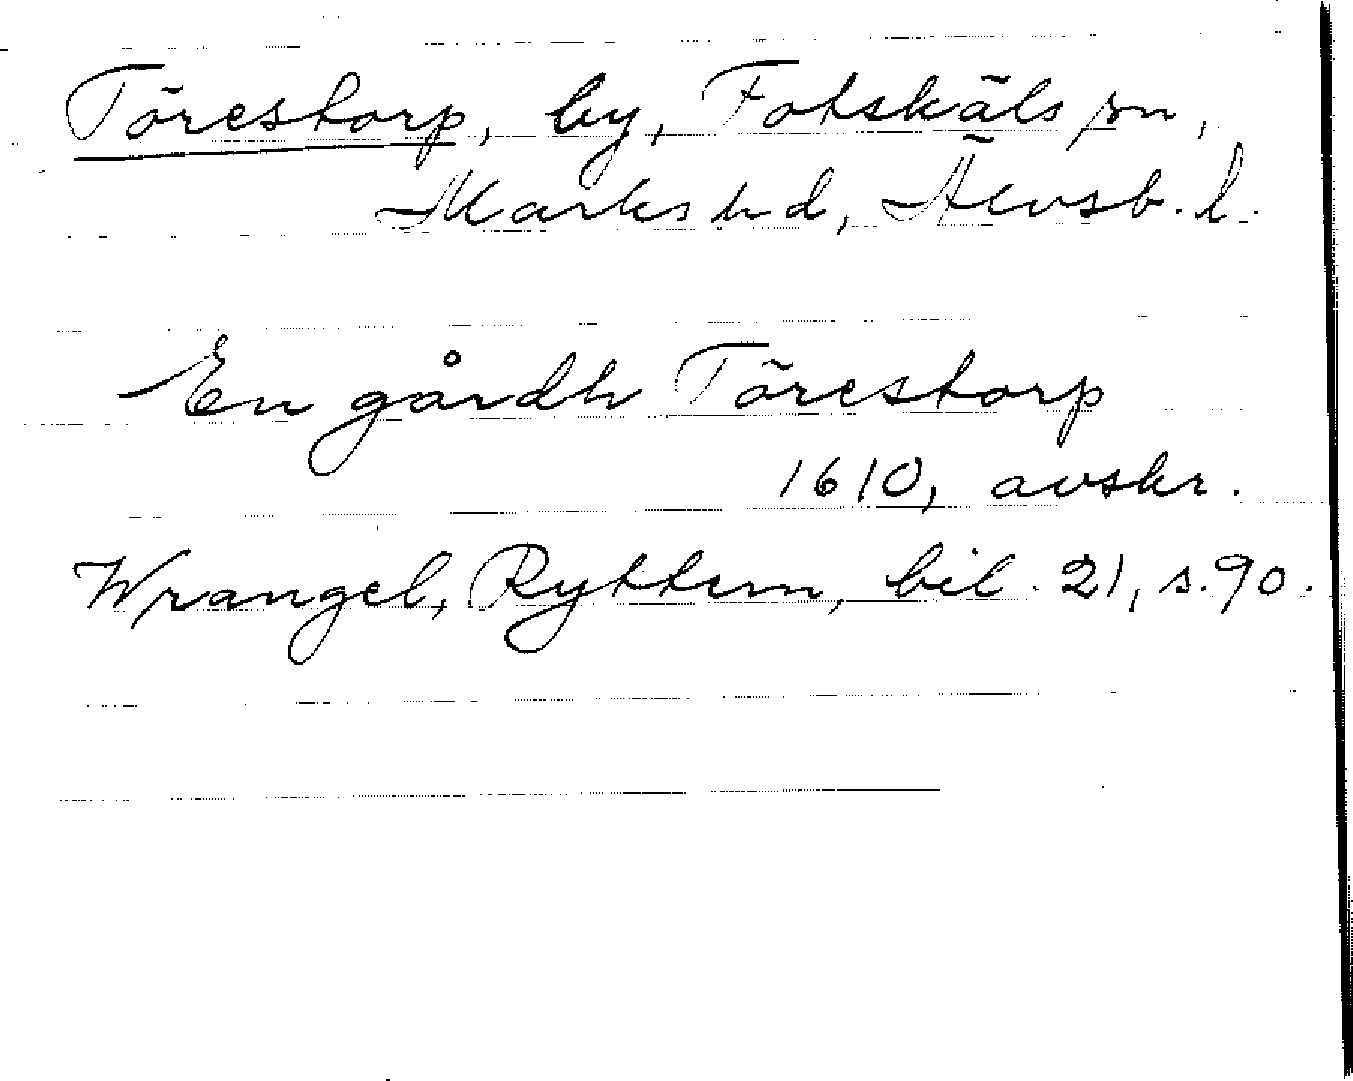 Törestorp, by, Fotskäls sn,
Marks hd, Älvsb. l.
En gårdh Törestorp
1610, avskr.
Wrangel, Ryttern, bil. 21, s. 90.